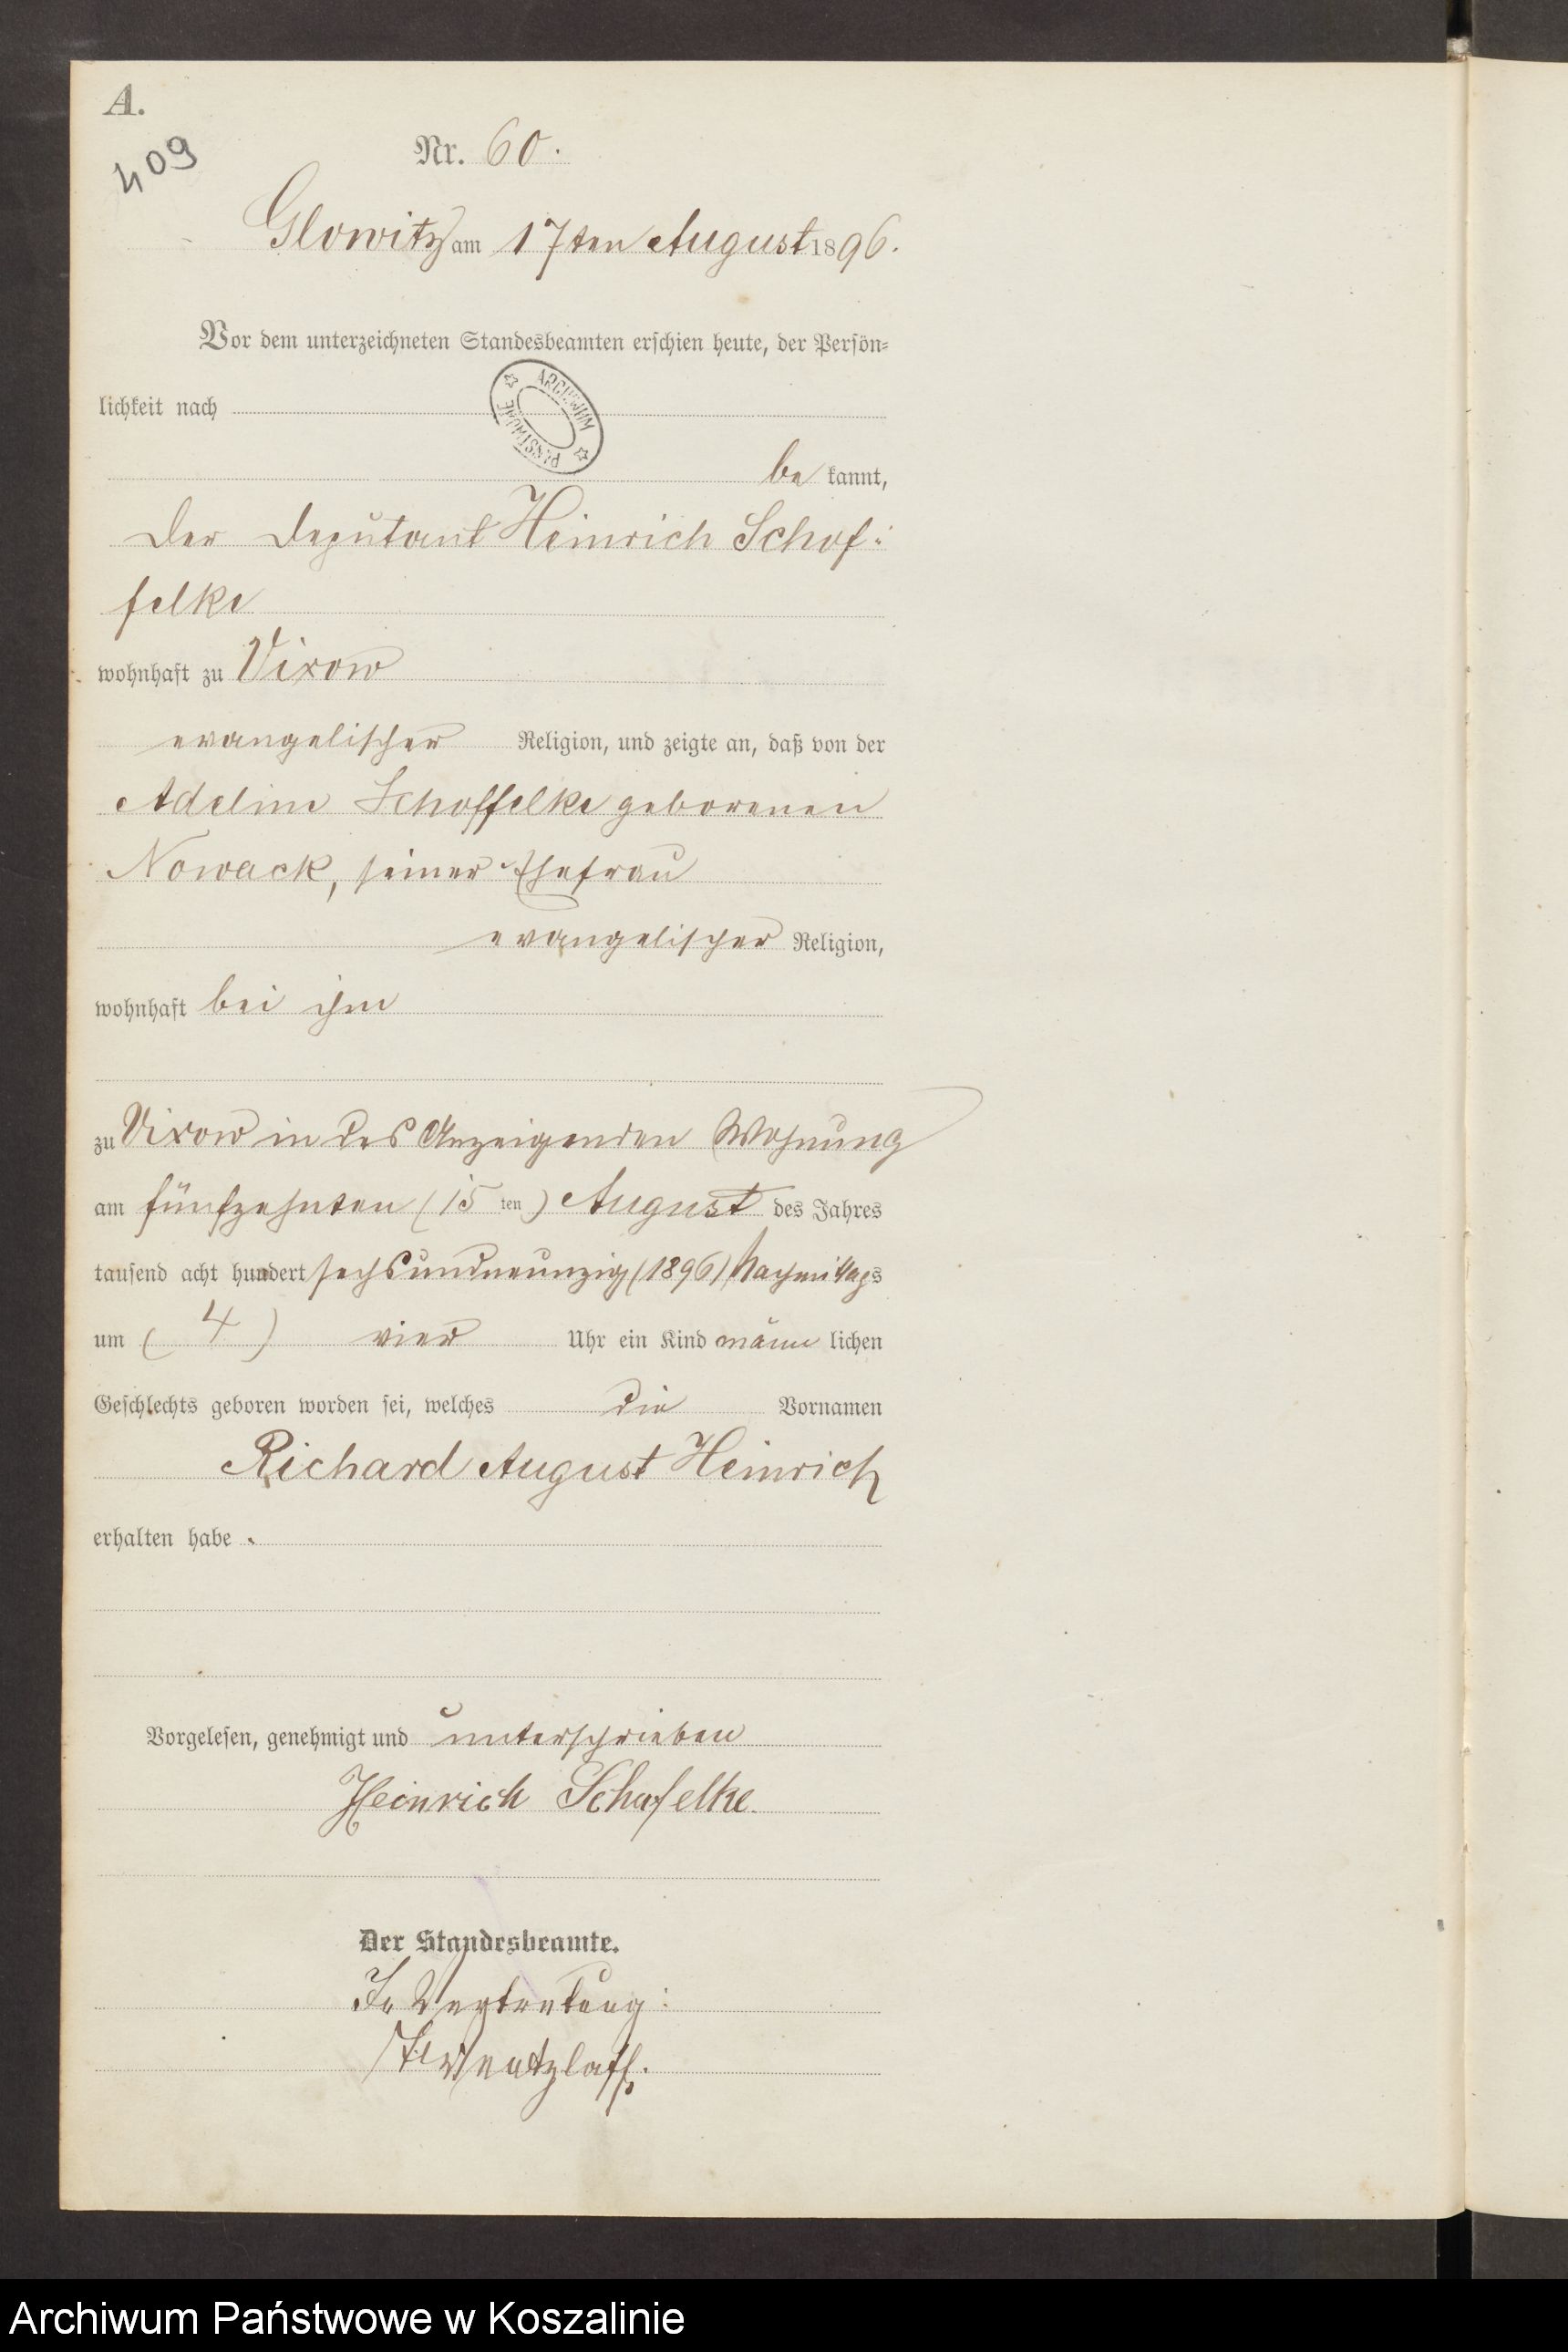 A.
409
Nr. 60.
Glowitz am 17ten August 1896.
Vor dem unterzeichneten Standesbeamten erschien heute, der Persön-
lichkeit nach
ARCHIWUM PAŃSTWOWE
be kannt,
der Deputant Heinrich Schof:
felke
wohnhaft zu Vixow
evangelischer Religion, und zeigte an, daß von der
Adeline Schoffelke geborenen
Nowack, seiner Ehefrau
evangelischer Religion,
wohnhaft bei ihm
zu Vixow in des Anzeigenden Wohnung
am fünfzehnten (15 ten) August des Jahres
tausend acht hundert sechsundneunzig (1896) Nachmittags
um (4) vier Uhr ein Kind männ lichen
Geschlechts geboren worden sei, welches die Vornamen
Richard August Heinrich
erhalten habe.
Vorgelesen, genehmigt und unterschrieben
Heinrich Schafelke
Der Standesbeamte.
In Vertretung:
Wentzlaff.
Archiwum Państwowe w Koszalinie